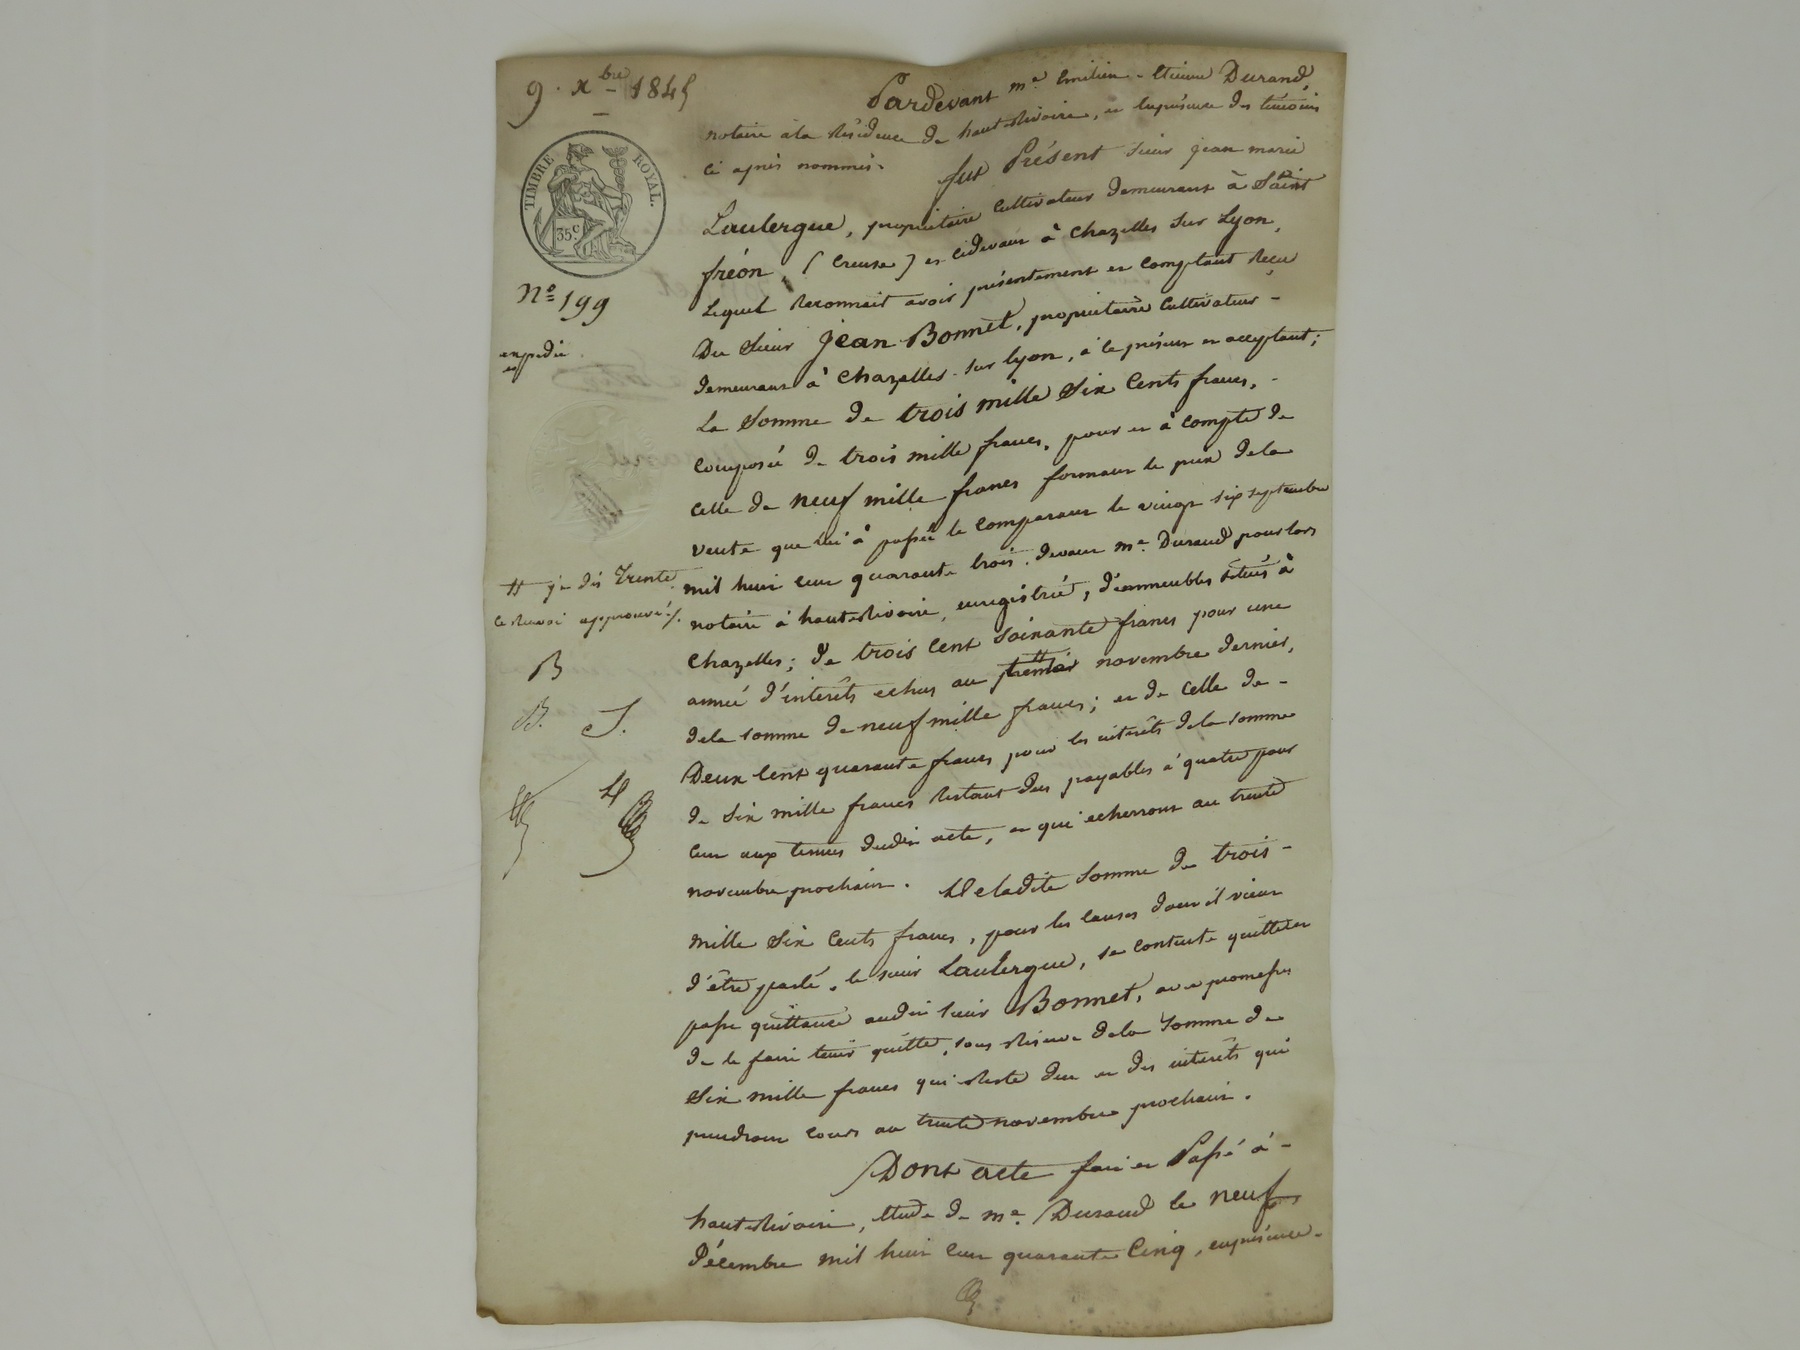 9. Xbre 1845
TIMBRE ROYAL.
35c
No 199
expédié
Pardevant me Emilien-Etienne Durand,
notaire à la résidence de haute Rivoire, en la présence des témoins
ci après nommés.
fut Présent sieur jean marie
Laulergue, propriétaire cultivateur demeurant à Saint
fréon, (Creuse) et cidevant à Chazelles sur Lyon,
Lequel reconnait avoir présentement et comptant reçu
Du sieur jean Bonnet, propriétaire cultivateur -
demeurant à Chazelles-sur Lyon, à ce présent et acceptant;
La Somme de trois mille Six Cents francs, -
composée de trois mille francs, pour et à compte de
celle de neuf mille francs formant le prix dela
vente que lui à passée le comparant le vingt six septembre
mil huit cent quarante trois, devant me Durand pour lors
notaire à haute Rivoire, enregistrée, d'immeubles situés à
Chazelles; de trois Cent Soixante francs pour une
année d'intérêts echus au # novembre dernier,
dela somme de neuf mille francs; et de celle de -
Deux Cent quarante francs pour les intérêts dela somme
de Six mille francs restant dus payables à quatre pour
cent aux termes dudit acte, et qui echerront au trente
novembre prochain. De ladite Somme de trois -
mille Six Cents francs, pour les causes dont il vient
d'être parlé, le sieur Laulergue, se contente quitte et
passe quittance audit sieur Bonnet, avec promesse
de le faire tenir quitte, sous réserve dela Somme de
Six mille francs qui reste due et des intérêts qui
prendront cours au trente novembre prochain.
Dont acte fait et Passé à -
haute Rivoire, étude de me. Durand le neuf
Décembre mil huit cent quarante Cinq, en présence -
# je dis Trente
ce renvoi approuvé ./.
B
B. J.
D